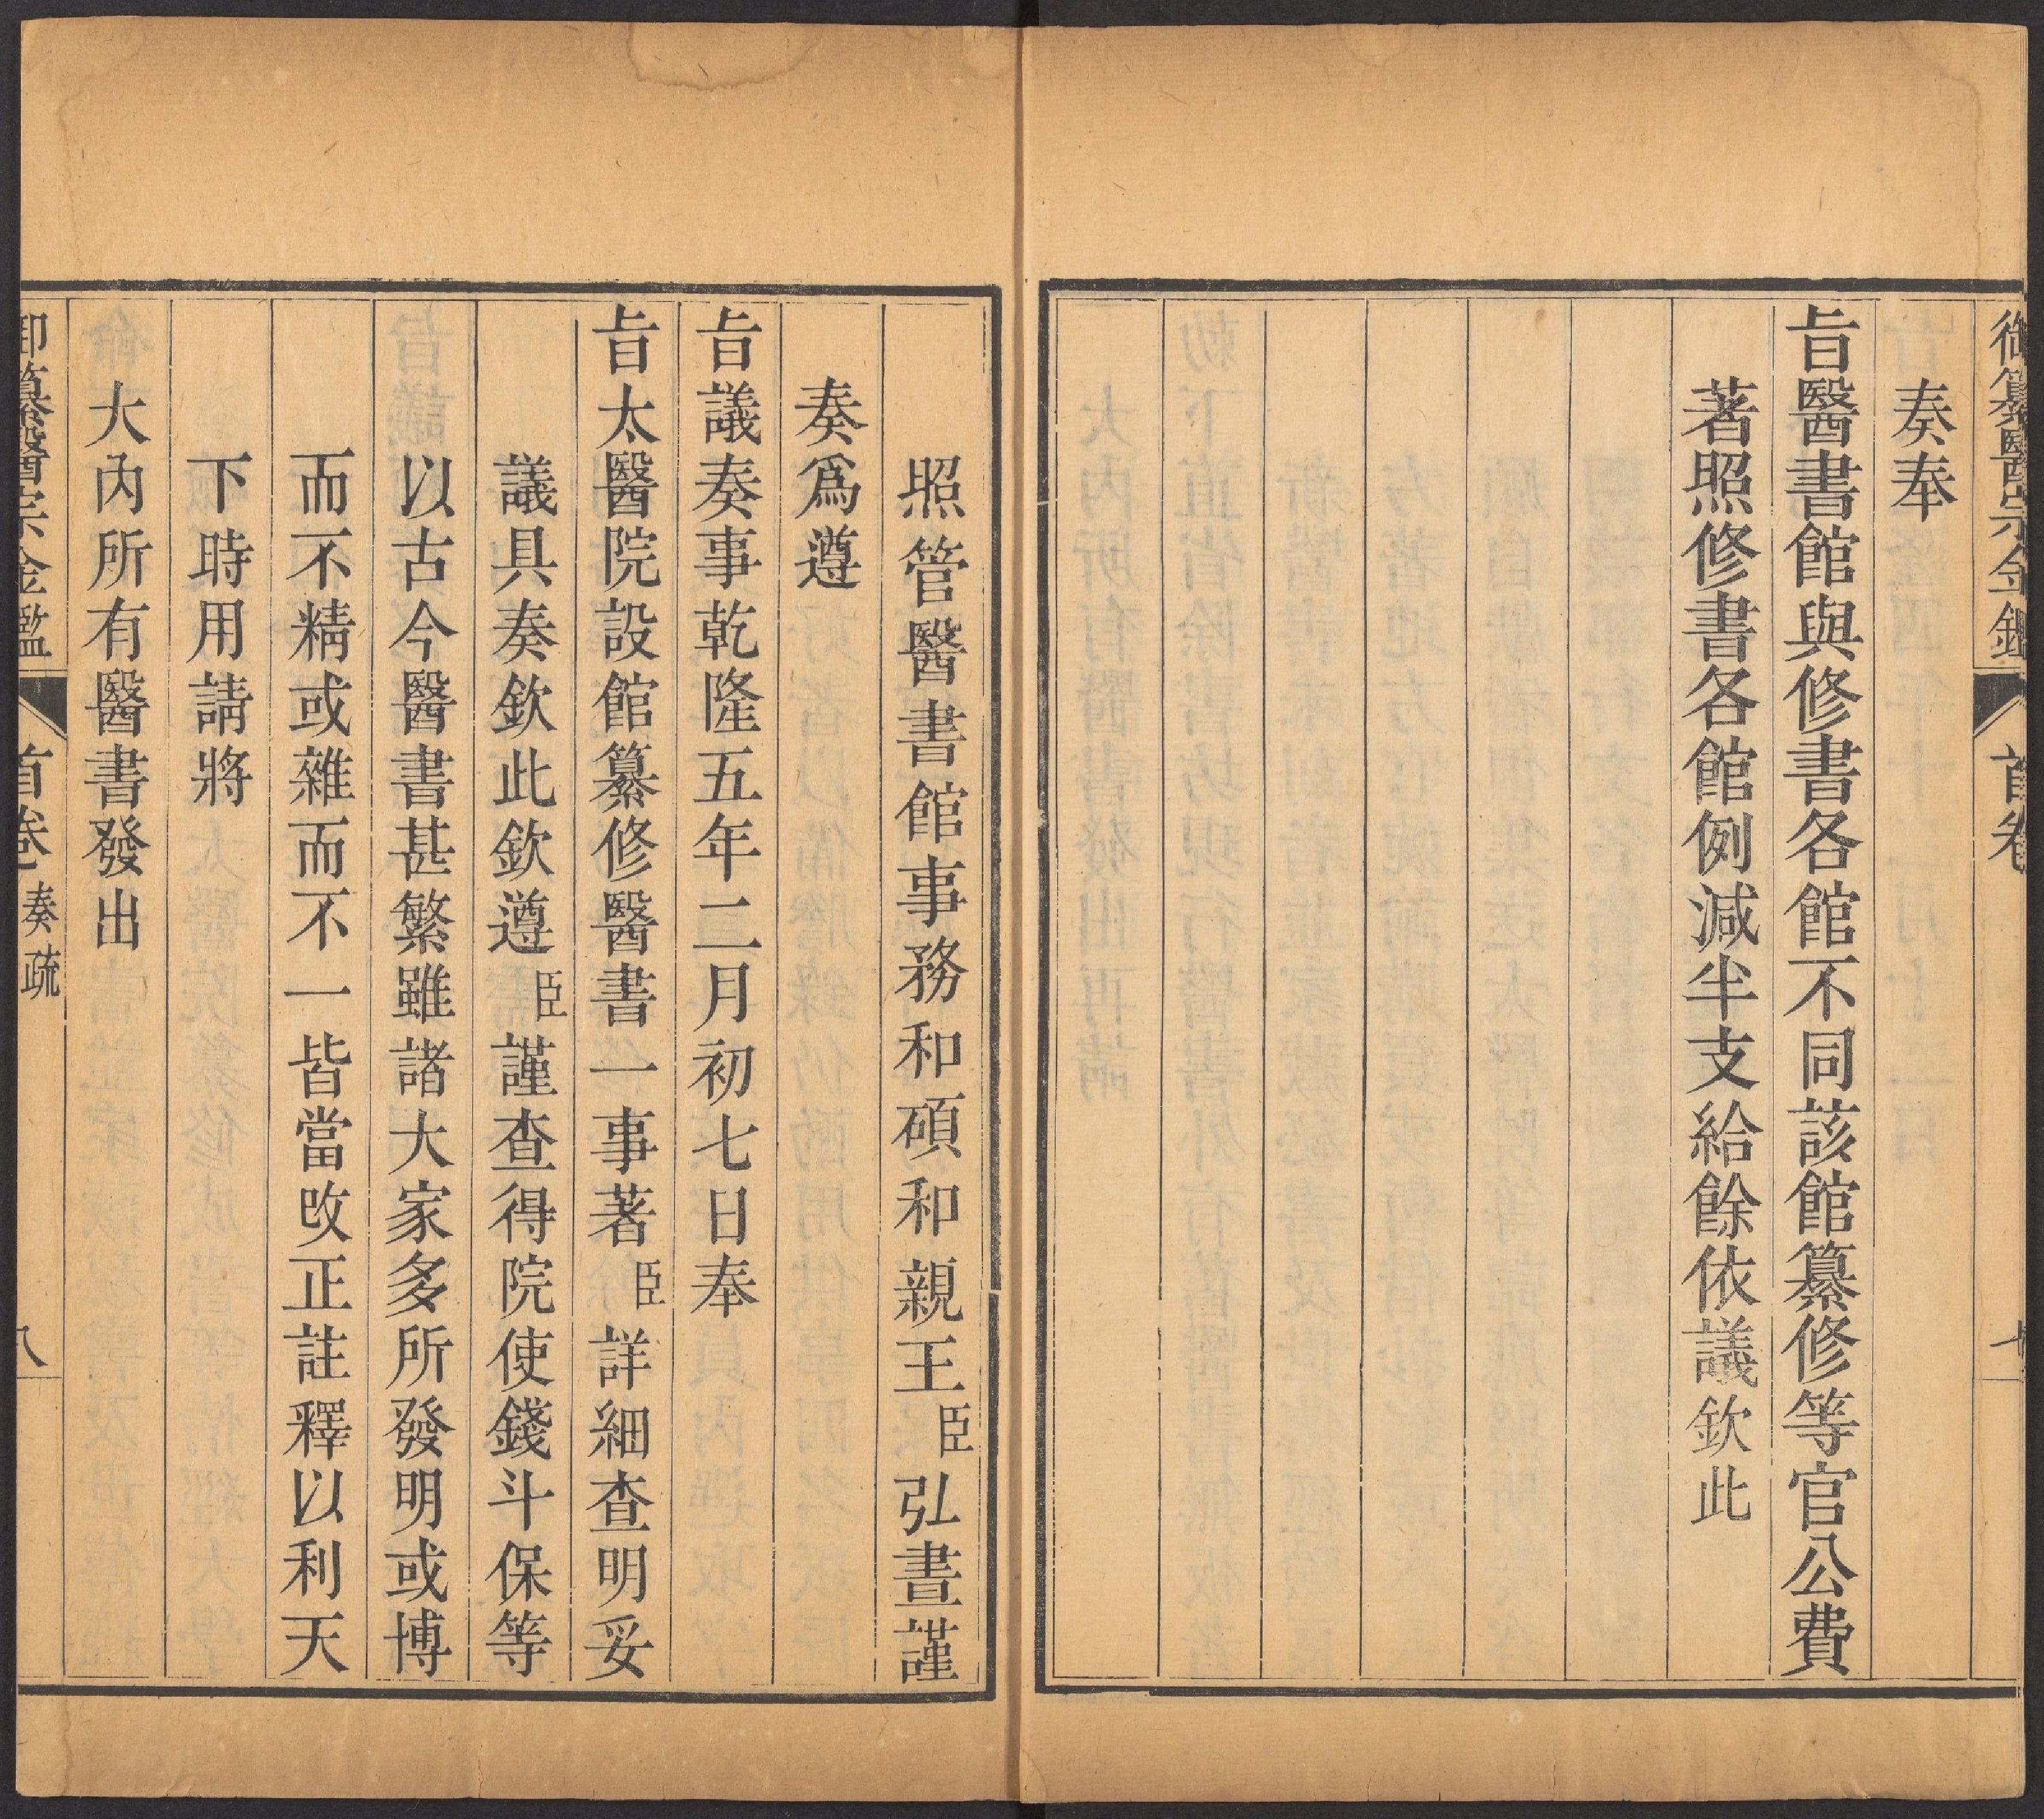 御纂醫宗金鑑 首卷 七
奏奉
旨醫書館與修書各館不同該館纂修等官公費
著照修書各館例減半支給餘依議欽此
照管醫書館事務和碩和親王臣弘晝謹
奏爲遵
旨議奏事乾隆五年二月初七日奉
旨太醫院設館纂修醫書一事著臣詳細查明妥
議具奏欽此欽遵臣謹查得院使錢斗保等
以古今醫書甚繁雖諸大家多所發明或博
而不精或雜而不一皆當改正註釋以利天
下時用請將
大內所有醫書發出
御纂醫宗金鑑 首卷 奏疏 八